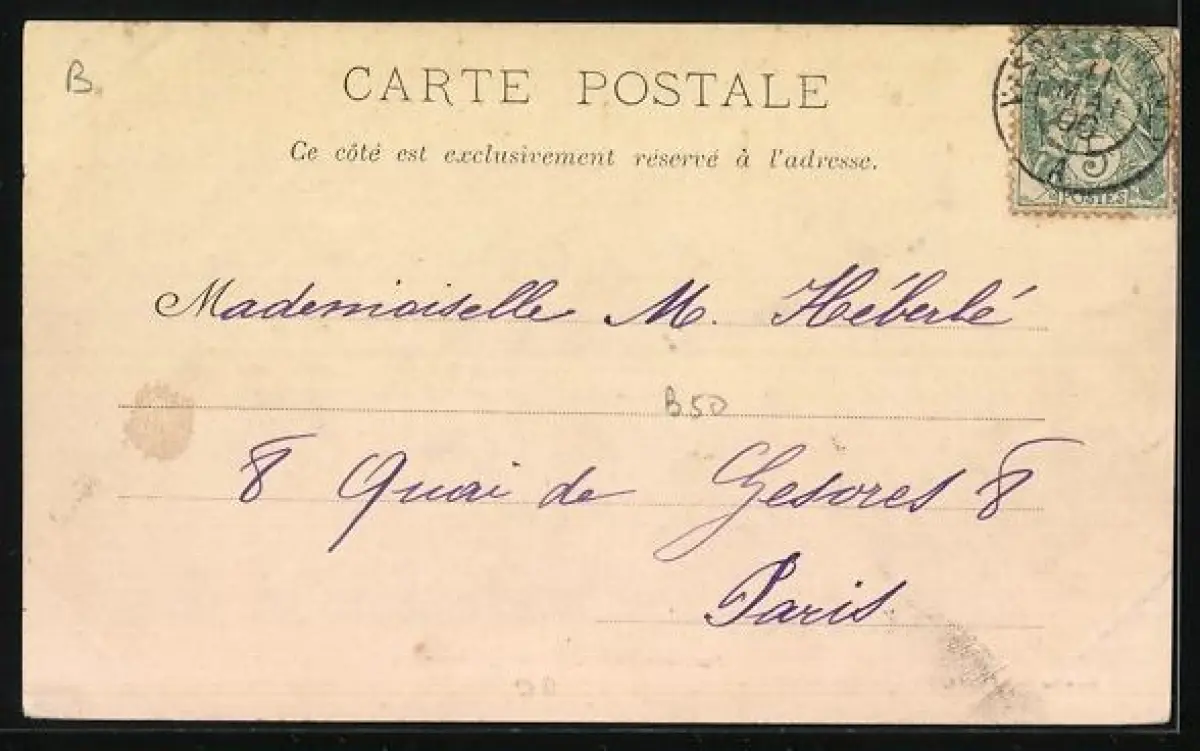 B.
CARTE POSTALE
Ce côté est exclusivement réservé à l'adresse.
11
MAI
A
5
POSTES
Mademoiselle M. Héberlé
B50
8 Quai de Gesores 8
Paris